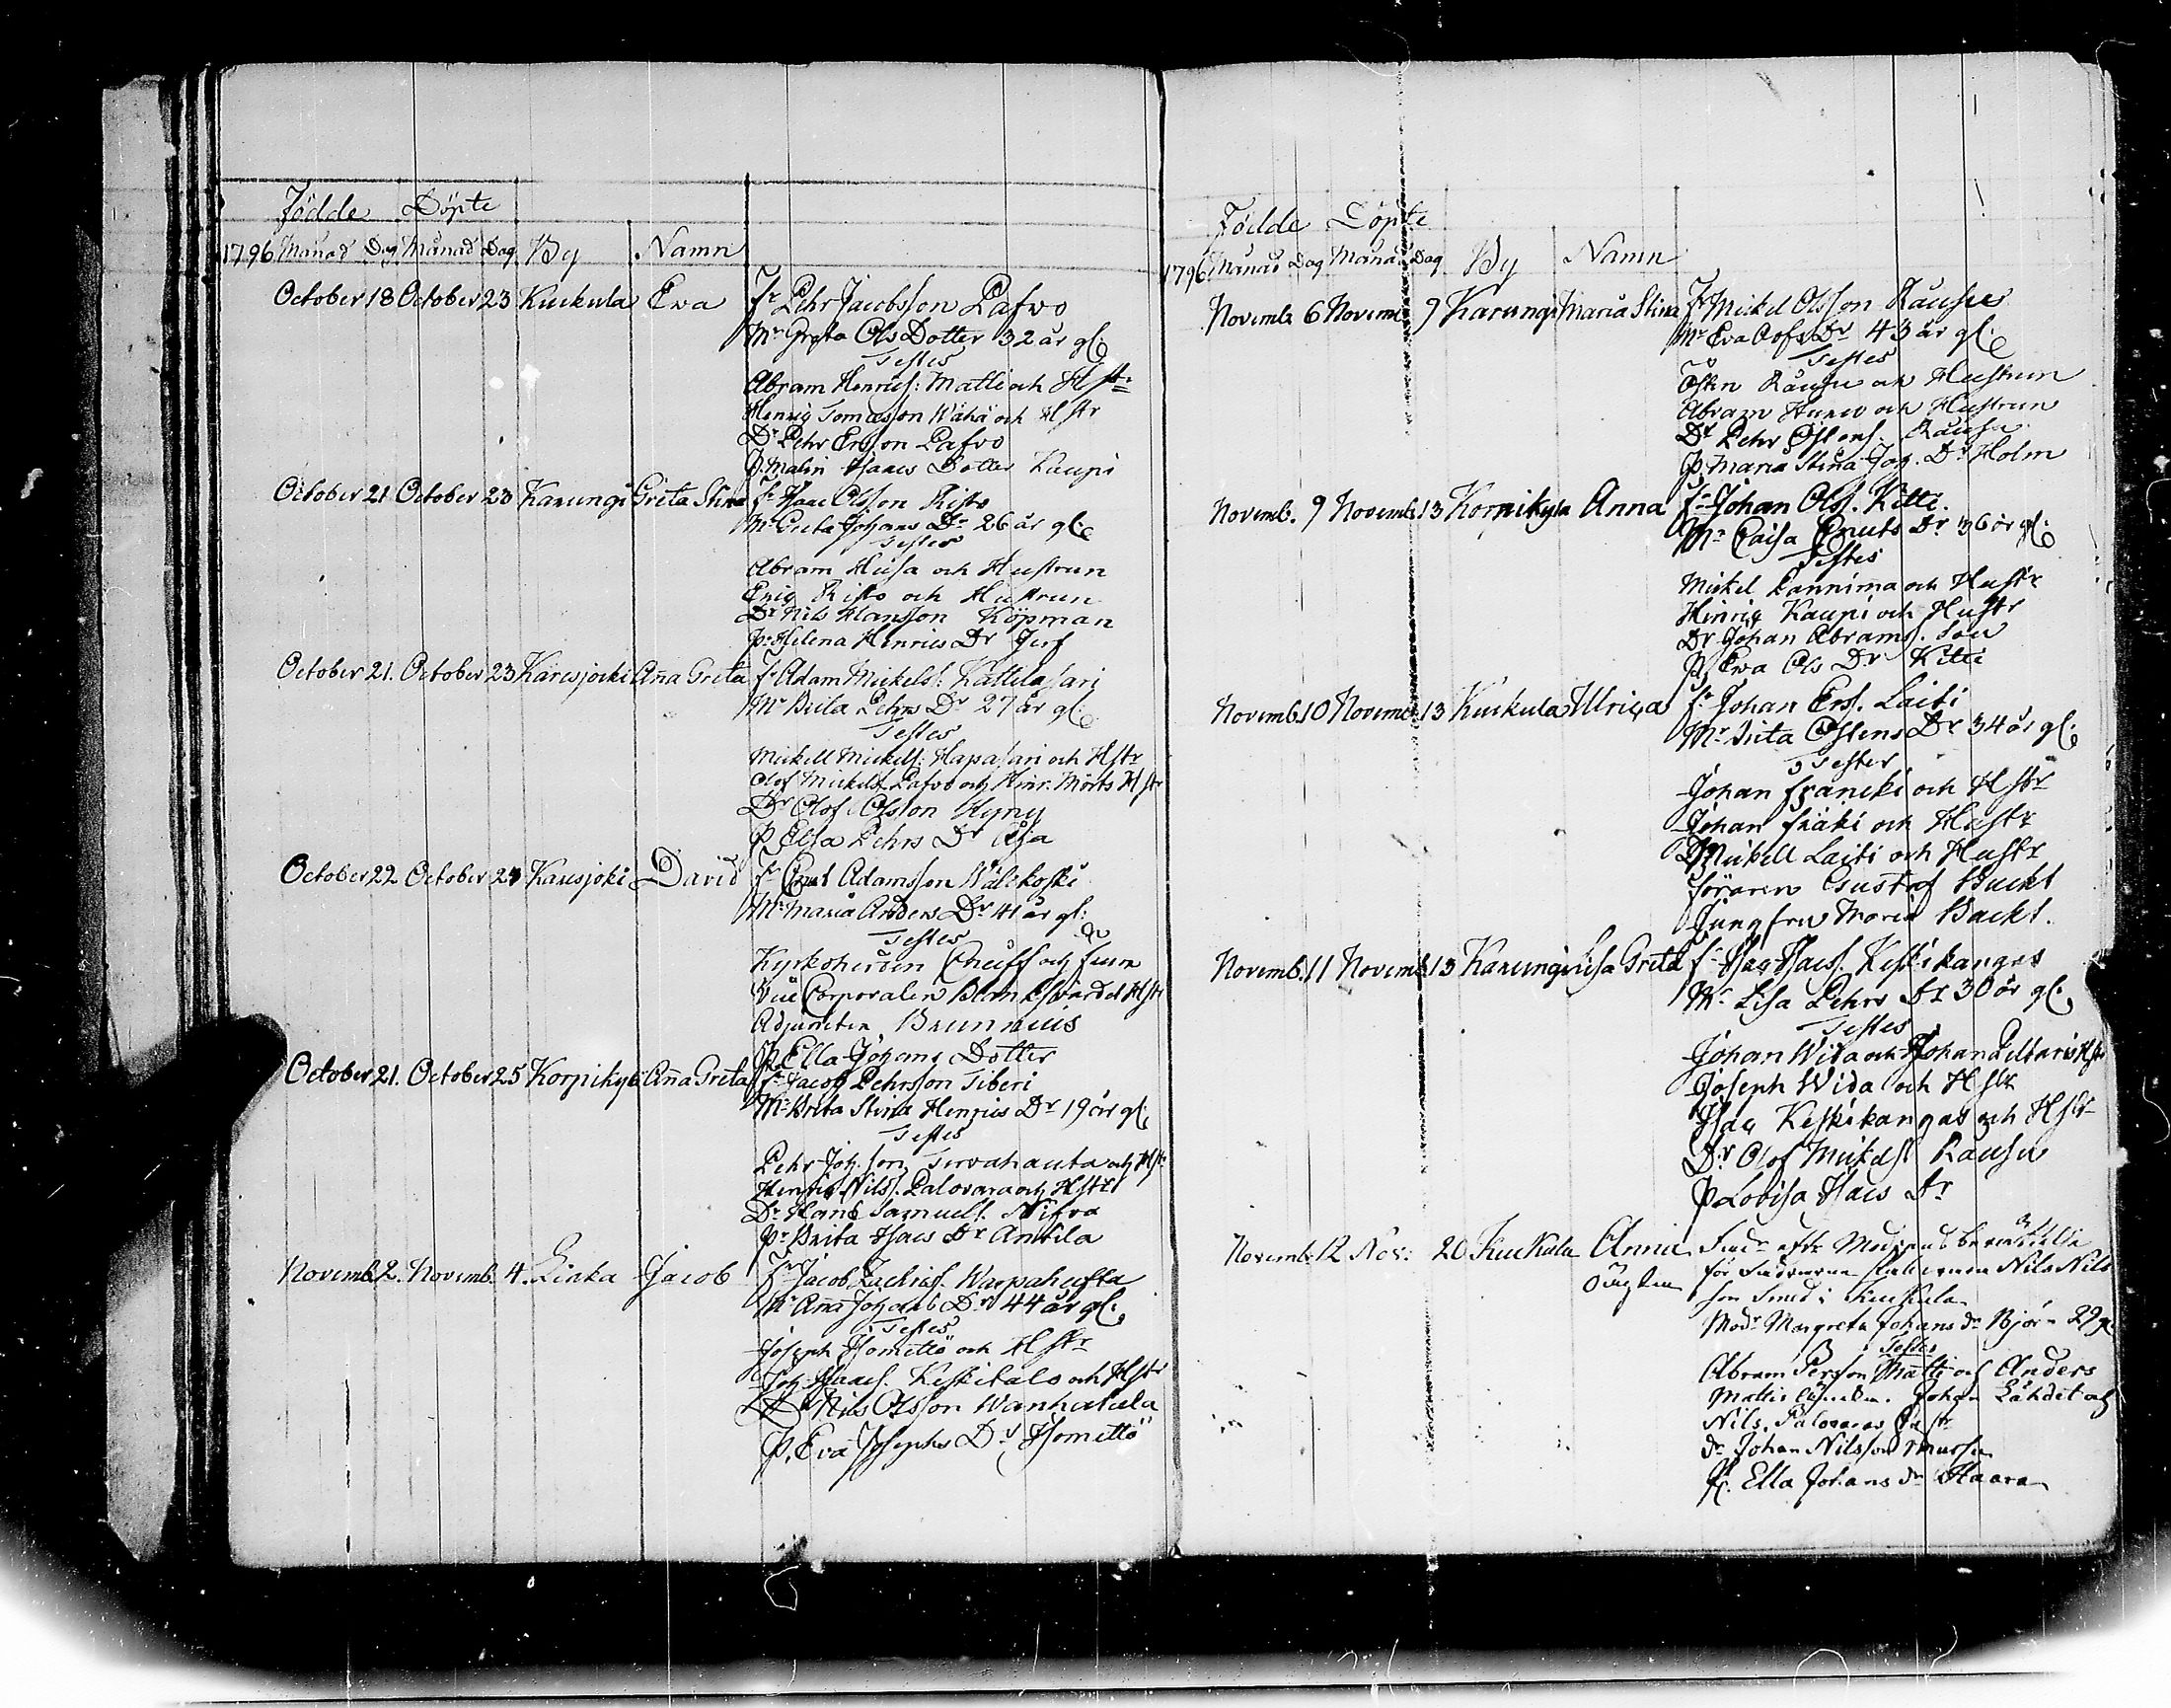 Födde Döpte
1796 Månad Dag Månad Dag By Namn
October 18 October 23 Kuckula Ewa Fr Pehr Jacobsson Pafvo
Mr Greta Ols Dotter 32 år gl:
Testes
Abram Henrics: Matti och Hstr
Henric Tomasson Wähä och Hstr
Dr Pehr Ersson Pafvo
P. Malin Isaacs Dotter Kaupi
October 21 October 23 Karungi Greta Stina Fr Isaac Olsson Risto
Mr Greta Johans Dr 26 år gl:
Testes
Abram Husa och Hustrun
Eric Risto och Hustrun
Dr Nils Hansson Köpman
P. Helena Henrics Dr Jerf
October 21. October 23 Karesjocki Aña Greta Fr Adam Mickels. Kattilasari
Mr Brita Pehrs Dr 27 år gl:
Testes
Mickell Mickells: Hapasari och Hstr
Olof Mickels. Pafvo och Hinr. Mörts Hstr
Dr Olof Olsson Kyny
P. Ella Pehrs Dr
October 22 October 24 Karesjoki David Fr Cnut Adamsson Wälikoski
Mr Maria Anders Dr 41 år gl:
Testes
Kyrkoherden och Frun
Vice Corporalen Blanksvärd Hstr
Adjuncten Brunnius
P. Ella Johans Dotter
October 21. October 25 Korpikylä Aña Greta Fr Jacob Pehrsson Tiberi
Mr Brita Stina Henrics Dr 19 år gl:
Testes
Pehr Joh. son Tervahauta och Hstr
Henric Nils. Palovara och Hstr
Dr Hans Samuels. Nifva
Pr Brita Isacs Dr Antila
Novemb. 2. Novemb. 4. Liaka Jacob Fr Jacob Zachris. Warpahufta
Mr Aña Johans Dr 44 år gl:
Testes
Joseph Isomettö och Hstr
Joh. Isaacs. Keskitalo och Hstr
Dr Nils Olsson Wanhatalo
P. Eva Josephs Dr Isomettö
Födde Döpte
1796 Månad Dag Månad Dag By Namn
Novemb. 6 Novemb. 9 Karungi Maria Stina Fr Mickel Olsson Rausu
Mr Eva Olofs Dr 43 år gl:
Testes
Östen Rausu och Hustrun
Abram Husa och Hustrun
Dr Pehr Östens. Rausu
P. Maria Stina Joh. Dr Holm
Novemb. 9 Novemb. 13 Korpikyla Anna Fr Johan Ols. Kitti.
Mr Caisa Cnuts Dr 36 år gl:
Testes
Mickel Pannima och Hustr
Hinric Kaupi och Hustr
Dr Johan Abrams.
P. Ewa Ols Dr Kitti
Novemb. 10 Novemb. 13 Kuckula Ulrica Fr Johan Ers. Laiti
Mr Brita Östens Dr 34 år gl:
Testes
Johan och Hstr
Johan och Hustr
Mickell Laiti och Hustr
Gustaf Buckt
Jungfru Maria Buckt.
Novemb. 11 Novemb. 13 Karungi Lisa Greta Fr Isac Isacs. Keskikangas
Mr Lisa Pehrs Dr 30 år gl:
Testes
Johan Wida och Johan Hstr
Joseph Wida och Hstr
Isac Keskikangas och Hstr
Dr Olof Mickels. Rausu
P. Lovisa Isacs Dr
Novemb. 12 Nov: 20 Kuckula Anna
oägta
Nils Nils
son Smed i Kuckula
Modr Margreta Johans dr Björn 29 gl
Testes
Abram Persson Matti och Anders
Matti Johan Lähdet och
Nils Palovara
Dr Johan Nilsson Mursu
P. Ella Johans dr Haara